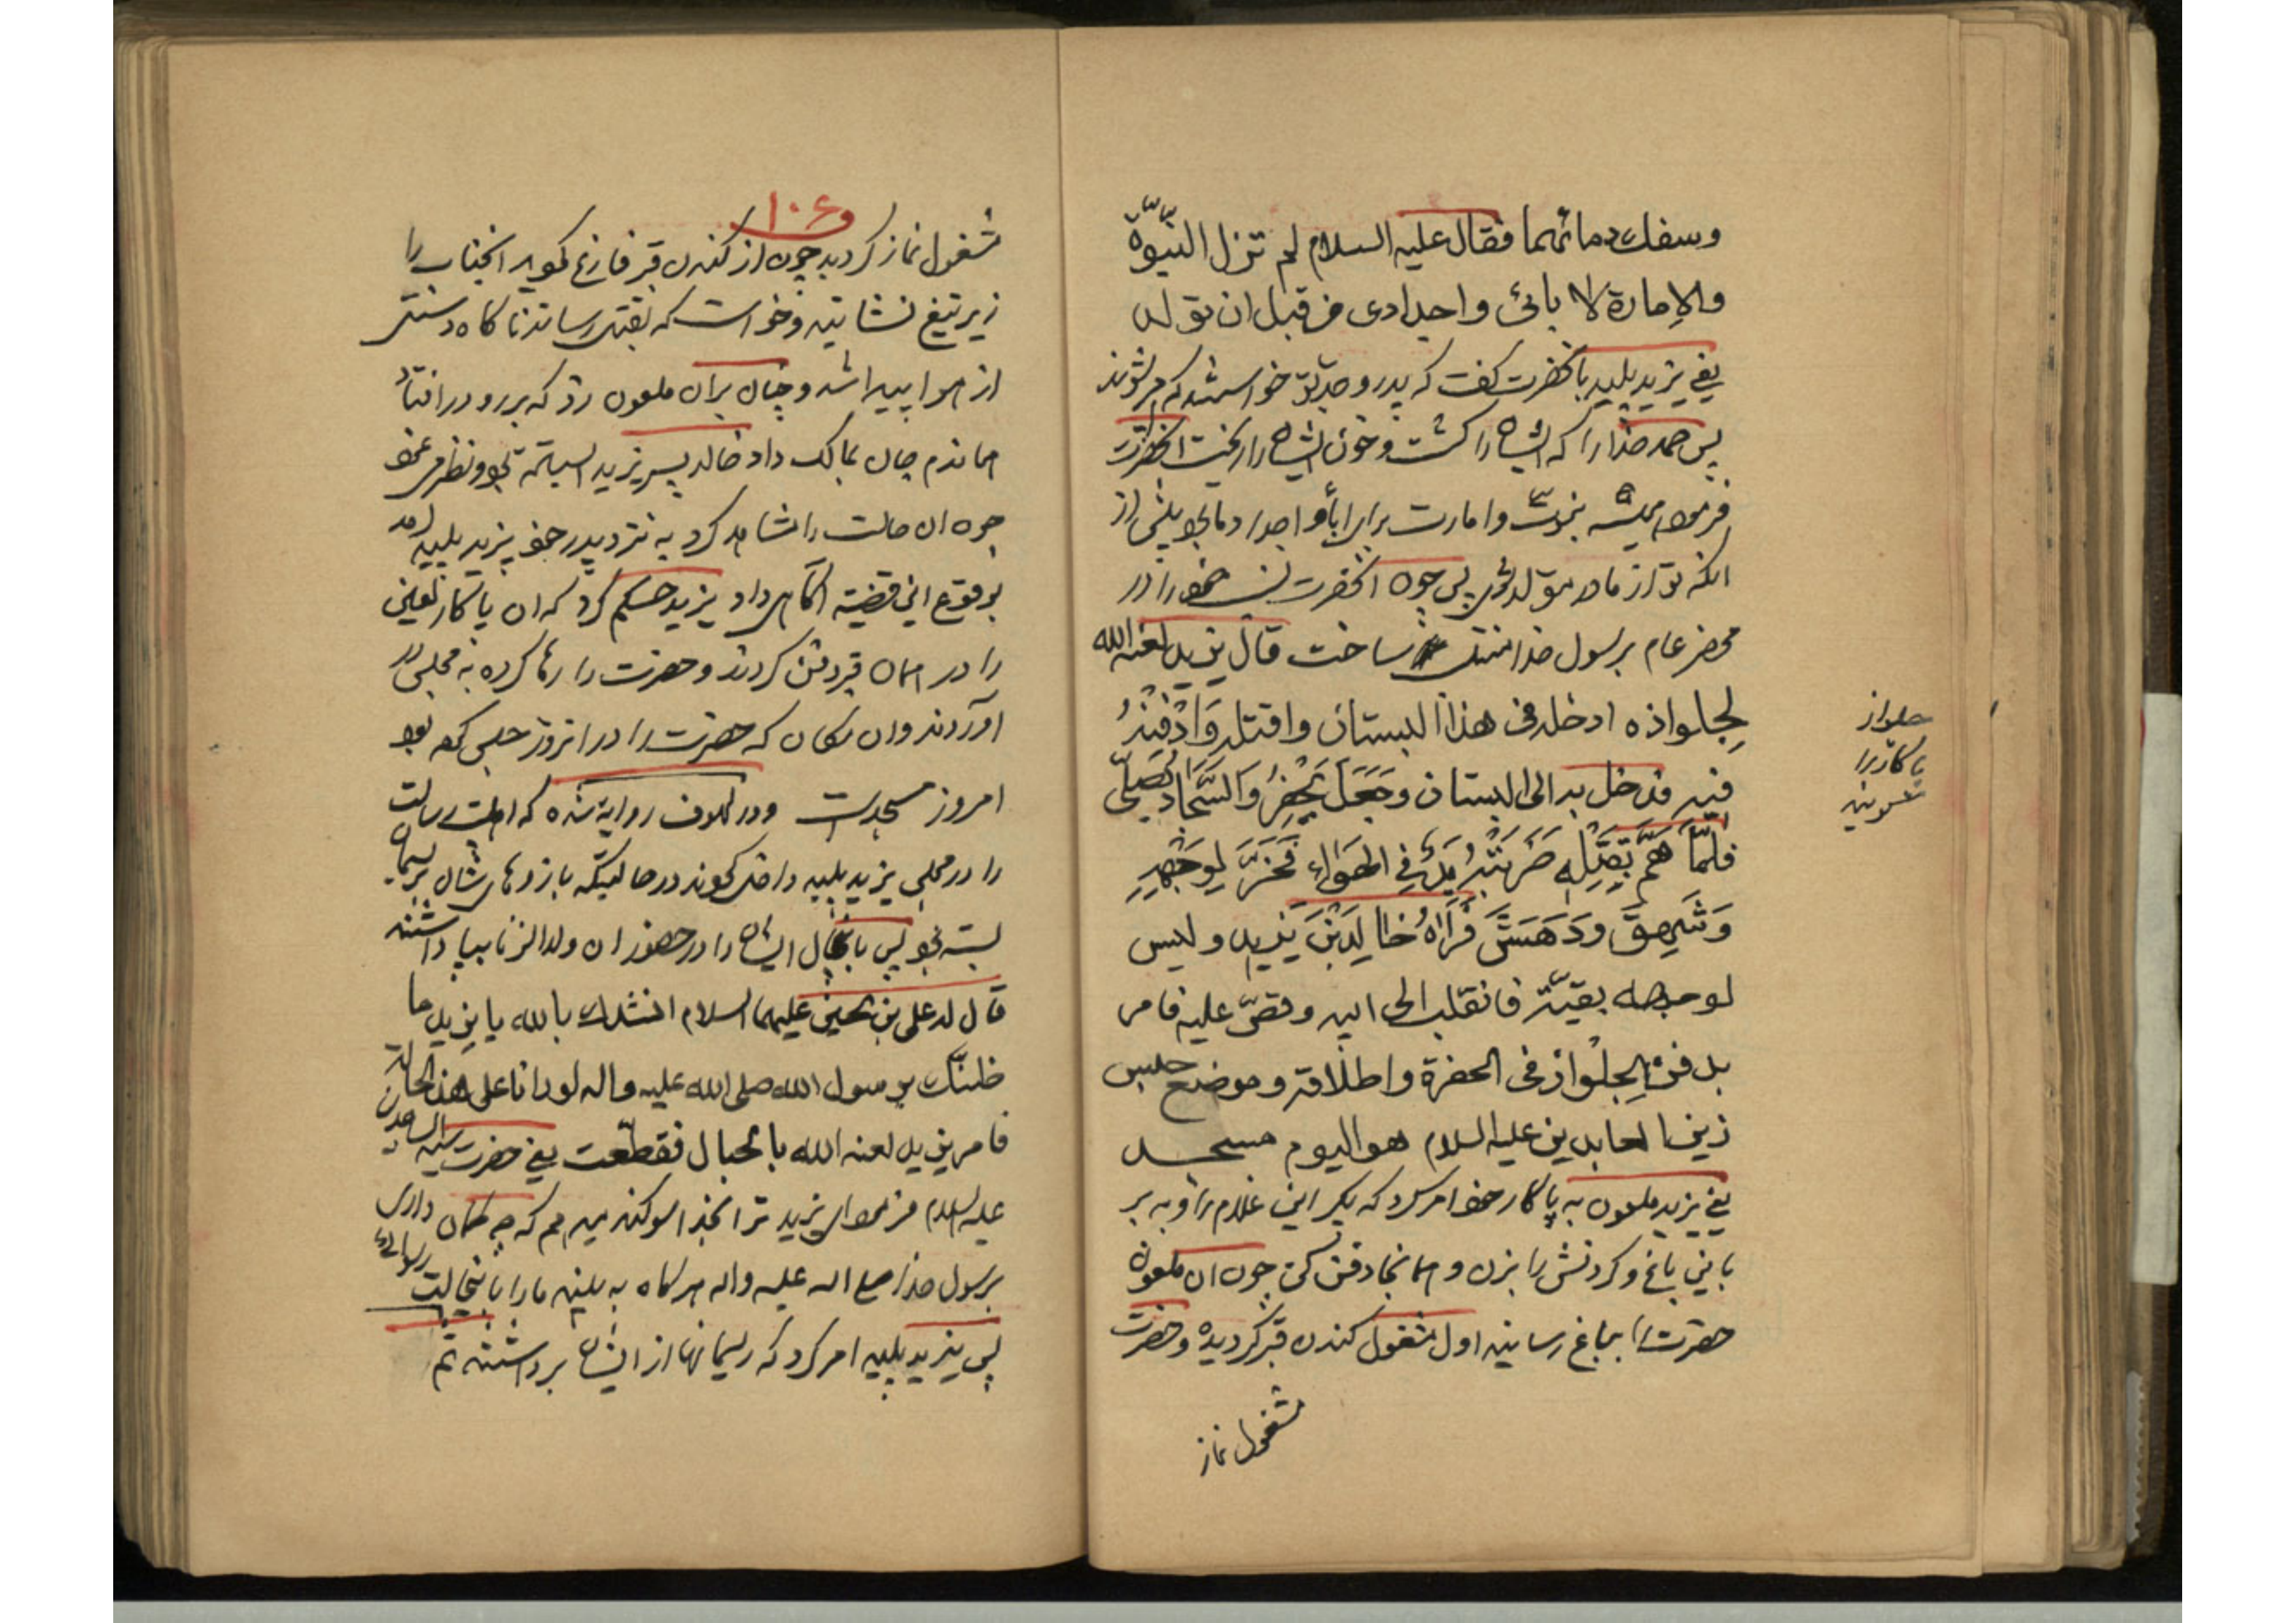 وسفك دمائهما فقال عليه السلام لم تزل النبوّة
والإمارة لابائى واجدادى من قبل ان تولد
يعنى يزيد پليد بانحضرت كفت كه پدر و جد تو خواستند كه امير شوند
پس حمد خدا را كه ايشان را كشت و خون ايشان را ريخت انحضرت
فرمود هميشه نبوّت وامارت براى اباء و اجداد ما بود پيش از
انكه تو از مادر متولد شوى پس چون انحضرت نسب خود را در
محضر عام برسول خدا منتهى ساخت قال يزيد لعنه الله
لجلواذه ادخله فى هذا البستان واقتله وَادْفِنْهُ
فيه فدخل به الى البستان وجَعَلَ يَحْفِرُ وَالسَّجّادُ يُصَلّى
فَلَمّا هَمَّ بِقَتْلِهِ ضَرَبَتْهُ يَدٌ فِى الهَواءِ فَخَرَّ لِوَجْهِهِ
وَشَهِقَ ودَهَشَ فَرَآهُ خالِدُ بْنُ يَزيد وليس
لوجهه بقيّة فانقلب الى ابيه وقصّ عليه فامر
بدفن الجِلْواذ فى الحفرة واطلاقه وموضع حبس
زين العابدين عليه السلام هو اليوم مسجد
يعنى يزيد ملعون به پاكار خود امر كرد كه بكير اين غلام را و به بر
باين باغ و كردنش را بزن و همانجا دفن كن چون ان ملعون
حضرت را بباغ رسانيد اول مشغول كندن قبر گرديد و حضرت
مشغول نماز
جلواز
پاكار را
ميكويند
١٠٦
مشغول نماز كرديد چون از كندن قبر فارغ كرديد انجناب را
زير تيغ نشانيد و خواست كه بقتل رساند ناكاه دستى
از هوا پيدا شد و چنان بران ملعون زد كه بر رو در افتاد
هماندم جان بمالك داد خالد پسر يزيد ايستاده بود و نظر مى نمود
چون ان حالت را مشاهده كرد به نزد پدر خود يزيد پليد امد
بوقوع اين قضيه اگاهى داد يزيد حكم كرد كه ان پاكار لعين
را در همان قبر دفن كردند و حضرت را رها كرده به مجلس در
اوردند وان مكان كه حضرت را در انروز حبس كرده بود
امروز مسجد است ودر لهوف روايت شده كه اهلبيت رسالت
را در مجلس يزيد پليد داخل كردند در حالتيكه بازوهاى شان بريسمان
بسته بود پس باين حال ايشان را در حضور ان ولد الزنا بپا داشتند
قال له على بن الحسين عليهما السلام انشدك بالله يا يزيد ما
ظنّك برسول الله صلى الله عليه واله لو رانا على هذه الحالة
فامر يزيد لعنه الله بالحبال فقطّعت يعنى حضرت سيد الساجدين
عليه السلام فرمود اى يزيد ترا بخدا سوكند ميدهم كه چه كمان دارى
برسول خدا صلى الله عليه واله هركاه به بيند ما را باينحالت رسوائى
پس يزيد پليد امر كرد كه ريسمانها از ايشان برداشتند ثم